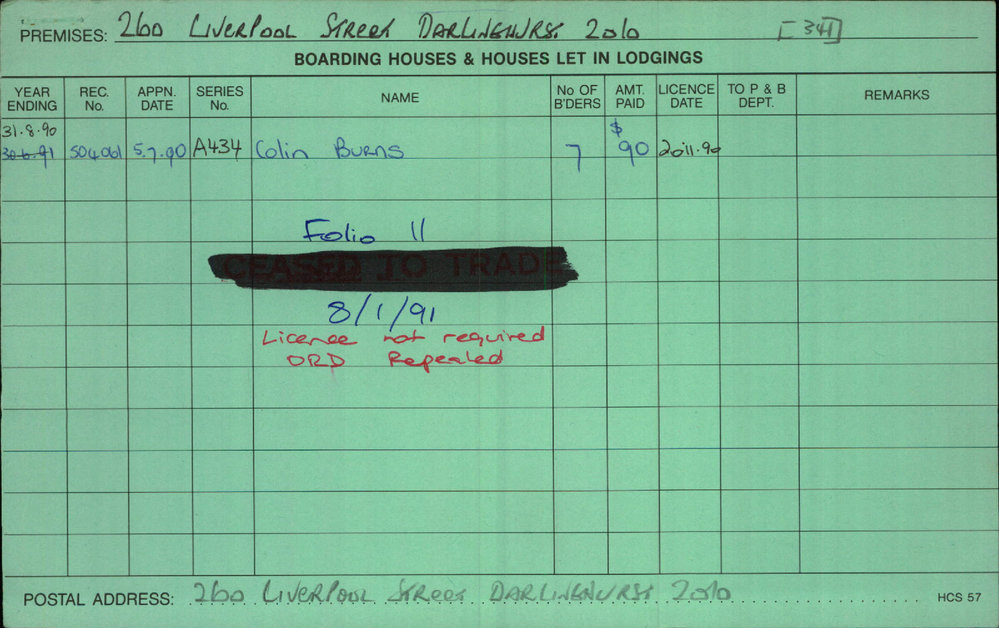 PREMISES: 260 LIVERPOOL STREET DARLINGHURST 2010 [341]
BOARDING HOUSES & HOUSES LET IN LODGINGS
YEAR ENDING REC. No. APPN. DATE SERIES No. NAME No OF B'DERS AMT. PAID LICENCE DATE TO P & B DEPT. REMARKS
31.8.90 $
30.6.91 504061 5.7.90 A434 Colin BURNS 7 90 20.11.90
Folio 11
CEASED TO TRADE
8/1/91
Licence not required
ORD Repealed
POSTAL ADDRESS: 260 LIVERPOOL STREET DARLINGHURST 2010
HCS 57